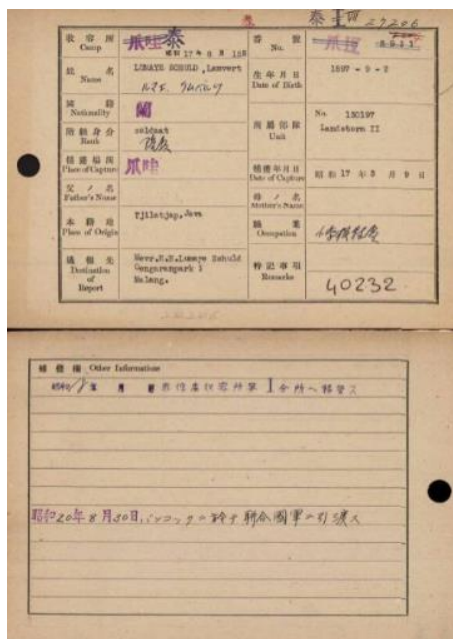 泰 I VII 27206
收容所 Camp 爪哇 泰 昭和 17 年 8 月 15日
番號 No. 爪哇
姓名 Name LUMAYE SCHULD, Lamvert
生年月日 Date of Birth 1897 - 9 - 2
國籍 Nationality 蘭
階級身分 Rank soldaat
所屬部隊 Unit No. 150197
Landstorm II
捕獲場所 Place of Capture 爪哇
捕獲年月日 Date of Capture 昭和 17 年 3 月 9 日
父ノ名 Father's Name
母ノ名 Mother's Name
本籍地 Place of Origin Tjilatjap, Java
職業 Occupation
通報先 Destination of Report Mevr.
Lumaye Schuld
Malang.
特記事項 Remarks
40232
補備欄 Other Information
年 月 日 泰俘虜収容所第 I 分所へ移管ス
昭和20年8月30日,バンコックニ於テ聯合國軍ニ引渡ス